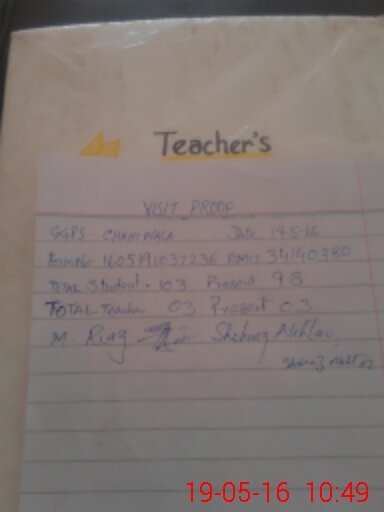 Teacher's
VISIT PROOF
GGPS CHAHIWALA Date 19-5-16
1605191037236 EMIS 34140380
TOTAL Student - 103 Present 98
TOTAL Teacher 03 Present 03
M Riaz Shehnaz Akhtar
19-05-16 10:49